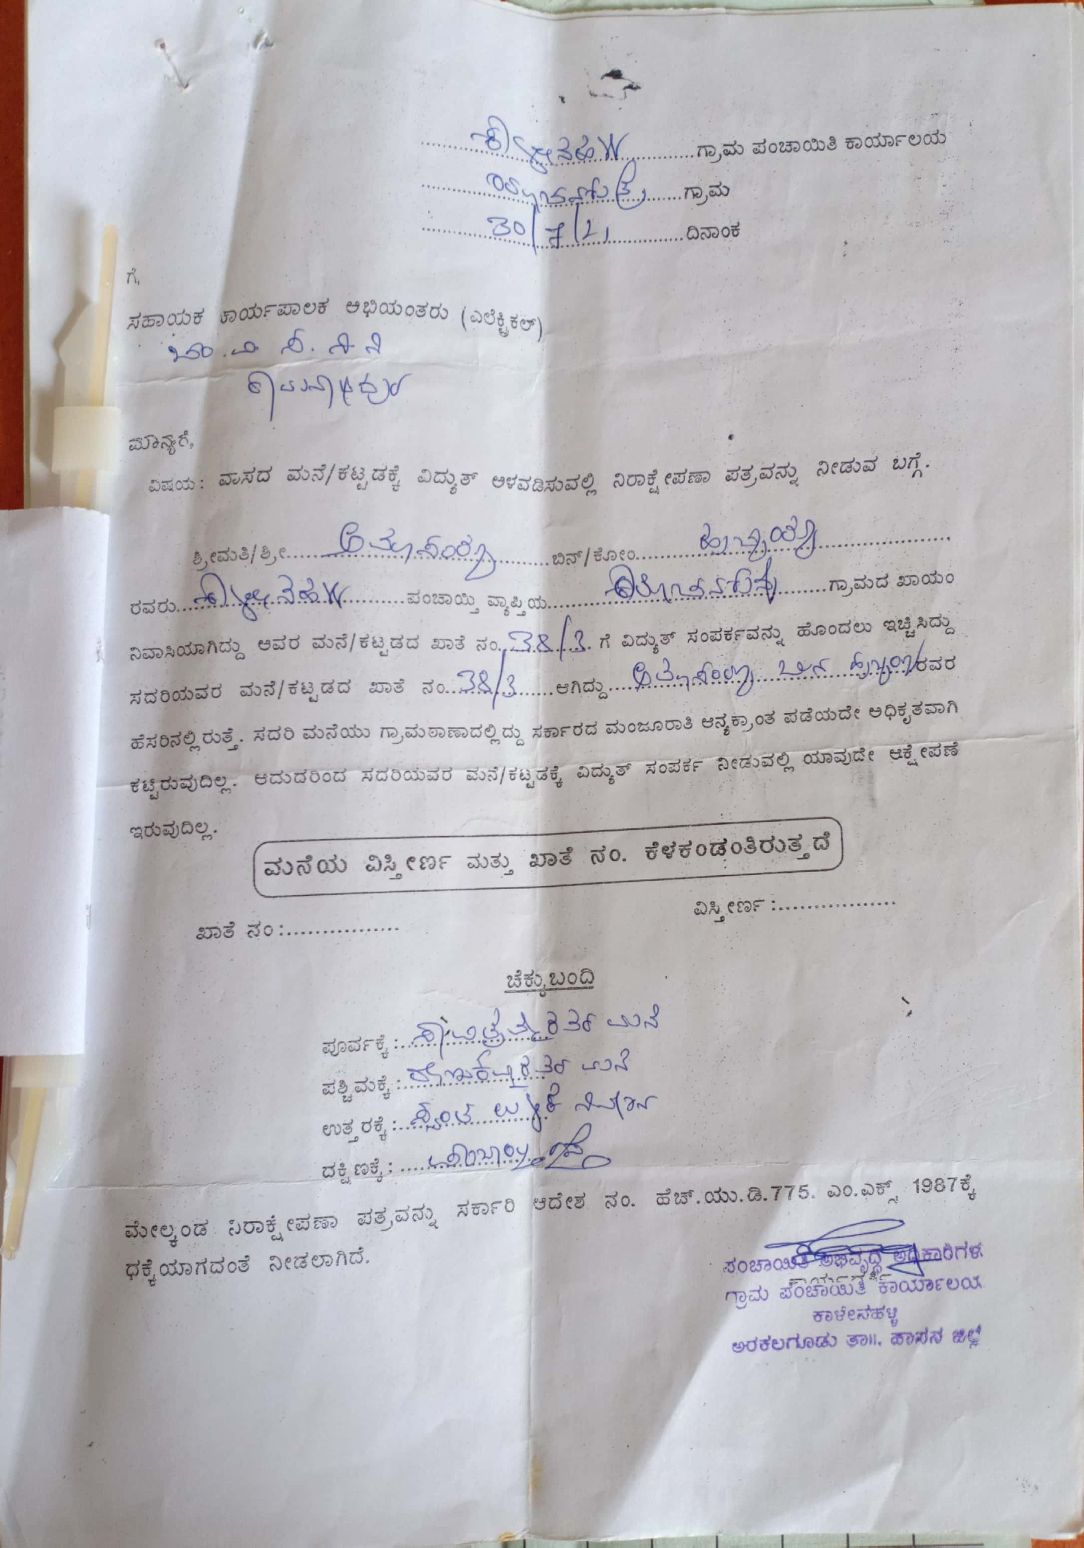 ಗ್ರಾಮ ಪಂಚಾಯಿತಿ ಕಾರ್ಯಾಲಯ
ಗ್ರಾಮ
30/7/21 ದಿನಾಂಕ
ಗೆ,
ಸಹಾಯಕ ಕಾರ್ಯಪಾಲಕ ಅಭಿಯಂತರು (ಎಲೆಕ್ಟ್ರಿಕಲ್)
ಮಾನ್ಯರೆ,
ವಿಷಯ: ವಾಸದ ಮನೆ/ಕಟ್ಟಡಕ್ಕೆ ವಿದ್ಯುತ್ ಅಳವಡಿಸುವಲ್ಲಿ ನಿರಾಕ್ಷೇಪಣಾ ಪತ್ರವನ್ನು ನೀಡುವ ಬಗ್ಗೆ.
ಶ್ರೀಮತಿ/ಶ್ರೀ ಬಿನ್/ಕೋಂ
ರವರು ಪಂಚಾಯ್ತಿ ವ್ಯಾಪ್ತಿಯ ಗ್ರಾಮದ ಖಾಯಂ
ನಿವಾಸಿಯಾಗಿದ್ದು ಅವರ ಮನೆ/ಕಟ್ಟಡದ ಖಾತೆ ನಂ. 38/3 ಗೆ ವಿದ್ಯುತ್ ಸಂಪರ್ಕವನ್ನು ಹೊಂದಲು ಇಚ್ಚಿಸಿದ್ದು
ಸದರಿಯವರ ಮನೆ/ಕಟ್ಟಡದ ಖಾತೆ ನಂ. 38/3 ಆಗಿದ್ದು ರವರ
ಹೆಸರಿನಲ್ಲಿರುತ್ತೆ. ಸದರಿ ಮನೆಯು ಗ್ರಾಮಠಾಣಾದಲ್ಲಿದ್ದು ಸರ್ಕಾರದ ಮಂಜೂರಾತಿ ಅನ್ಯಕ್ರಾಂತ ಪಡೆಯದೇ ಅಧಿಕೃತವಾಗಿ
ಕಟ್ಟಿರುವುದಿಲ್ಲ. ಆದುದರಿಂದ ಸದರಿಯವರ ಮನೆ/ಕಟ್ಟಡಕ್ಕೆ ವಿದ್ಯುತ್ ಸಂಪರ್ಕ ನೀಡುವಲ್ಲಿ ಯಾವುದೇ ಆಕ್ಷೇಪಣೆ
ಇರುವುದಿಲ್ಲ.
ಮನೆಯ ವಿಸ್ತೀರ್ಣ ಮತ್ತು ಖಾತೆ ನಂ. ಕೆಳಕಂಡಂತಿರುತ್ತದೆ
ಖಾತೆ ನಂ:................ ವಿಸ್ತೀರ್ಣ:.................
ಚೆಕ್ಕುಬಂದಿ
ಪೂರ್ವಕ್ಕೆ: ಮನೆ
ಪಶ್ಚಿಮಕ್ಕೆ: ಮನೆ
ಉತ್ತರಕ್ಕೆ:
ದಕ್ಷಿಣಕ್ಕೆ:
ಮೇಲ್ಕಂಡ ನಿರಾಕ್ಷೇಪಣಾ ಪತ್ರವನ್ನು ಸರ್ಕಾರಿ ಆದೇಶ ನಂ. ಹೆಚ್.ಯು.ಡಿ.775. ಎಂ.ಎಕ್ಸ್. 1987ಕ್ಕೆ
ಧಕ್ಕೆಯಾಗದಂತೆ ನೀಡಲಾಗಿದೆ.
ಪಂಚಾಯಿತಿ ಅಭಿವೃದ್ಧಿ ಅಧಿಕಾರಿಗಳು
ಗ್ರಾಮ ಪಂಚಾಯಿತಿ ಕಾರ್ಯಾಲಯ
ಕಾಳೇನಹಳ್ಳಿ
ಅರಕಲಗೂಡು ತಾ||. ಹಾಸನ ಜಿಲ್ಲೆ